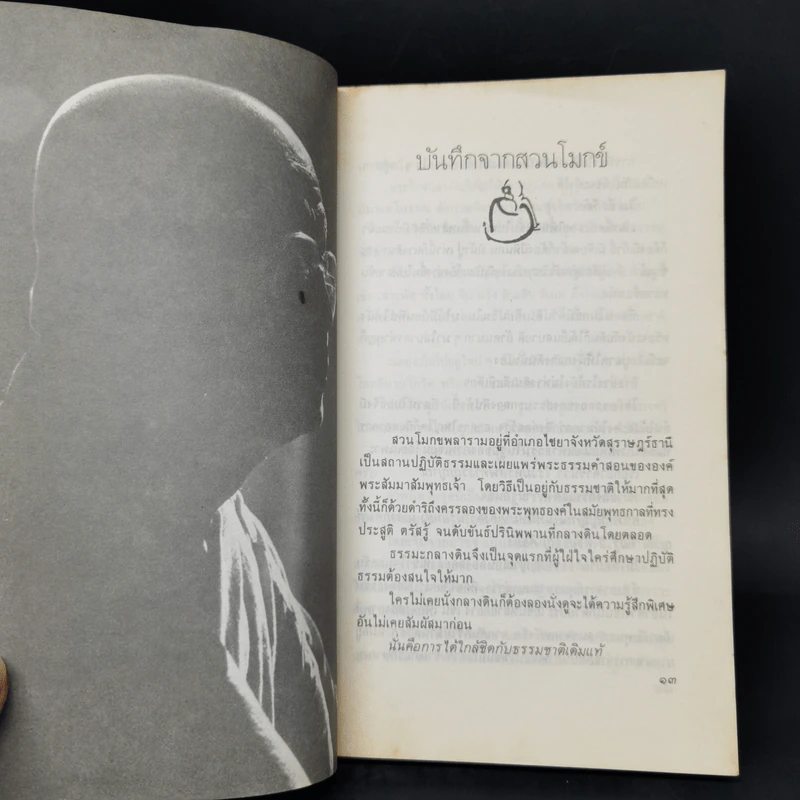 บันทึกจากสวนโมกข์
สวนโมกขพลารามอยู่ที่อำเภอไชยาจังหวัดสุราษฎร์ธานี
เป็นสถานปฏิบัติธรรมและเผยแพร่พระธรรมคำสอนขององค์
พระสัมมาสัมพุทธเจ้า โดยวิธีเป็นอยู่กับธรรมชาติให้มากที่สุด
ทั้งนี้ก็ด้วยดำริถึงครรลองของพระพุทธองค์ในสมัยพุทธกาลที่ทรง
ประสูติ ตรัสรู้ จนดับขันธ์ปรินิพพานที่กลางดินโดยตลอด
ธรรมะกลางดินจึงเป็นจุดแรกที่ผู้ใฝ่ใจใคร่ศึกษาปฏิบัติ
ธรรมต้องสนใจให้มาก
ใครไม่เคยนั่งกลางดินก็ต้องลองนั่งดูจะได้ความรู้สึกพิเศษ
อันไม่เคยสัมผัสมาก่อน
นั่นคือการได้ใกล้ชิดกับธรรมชาติเดิมแท้
๑๓